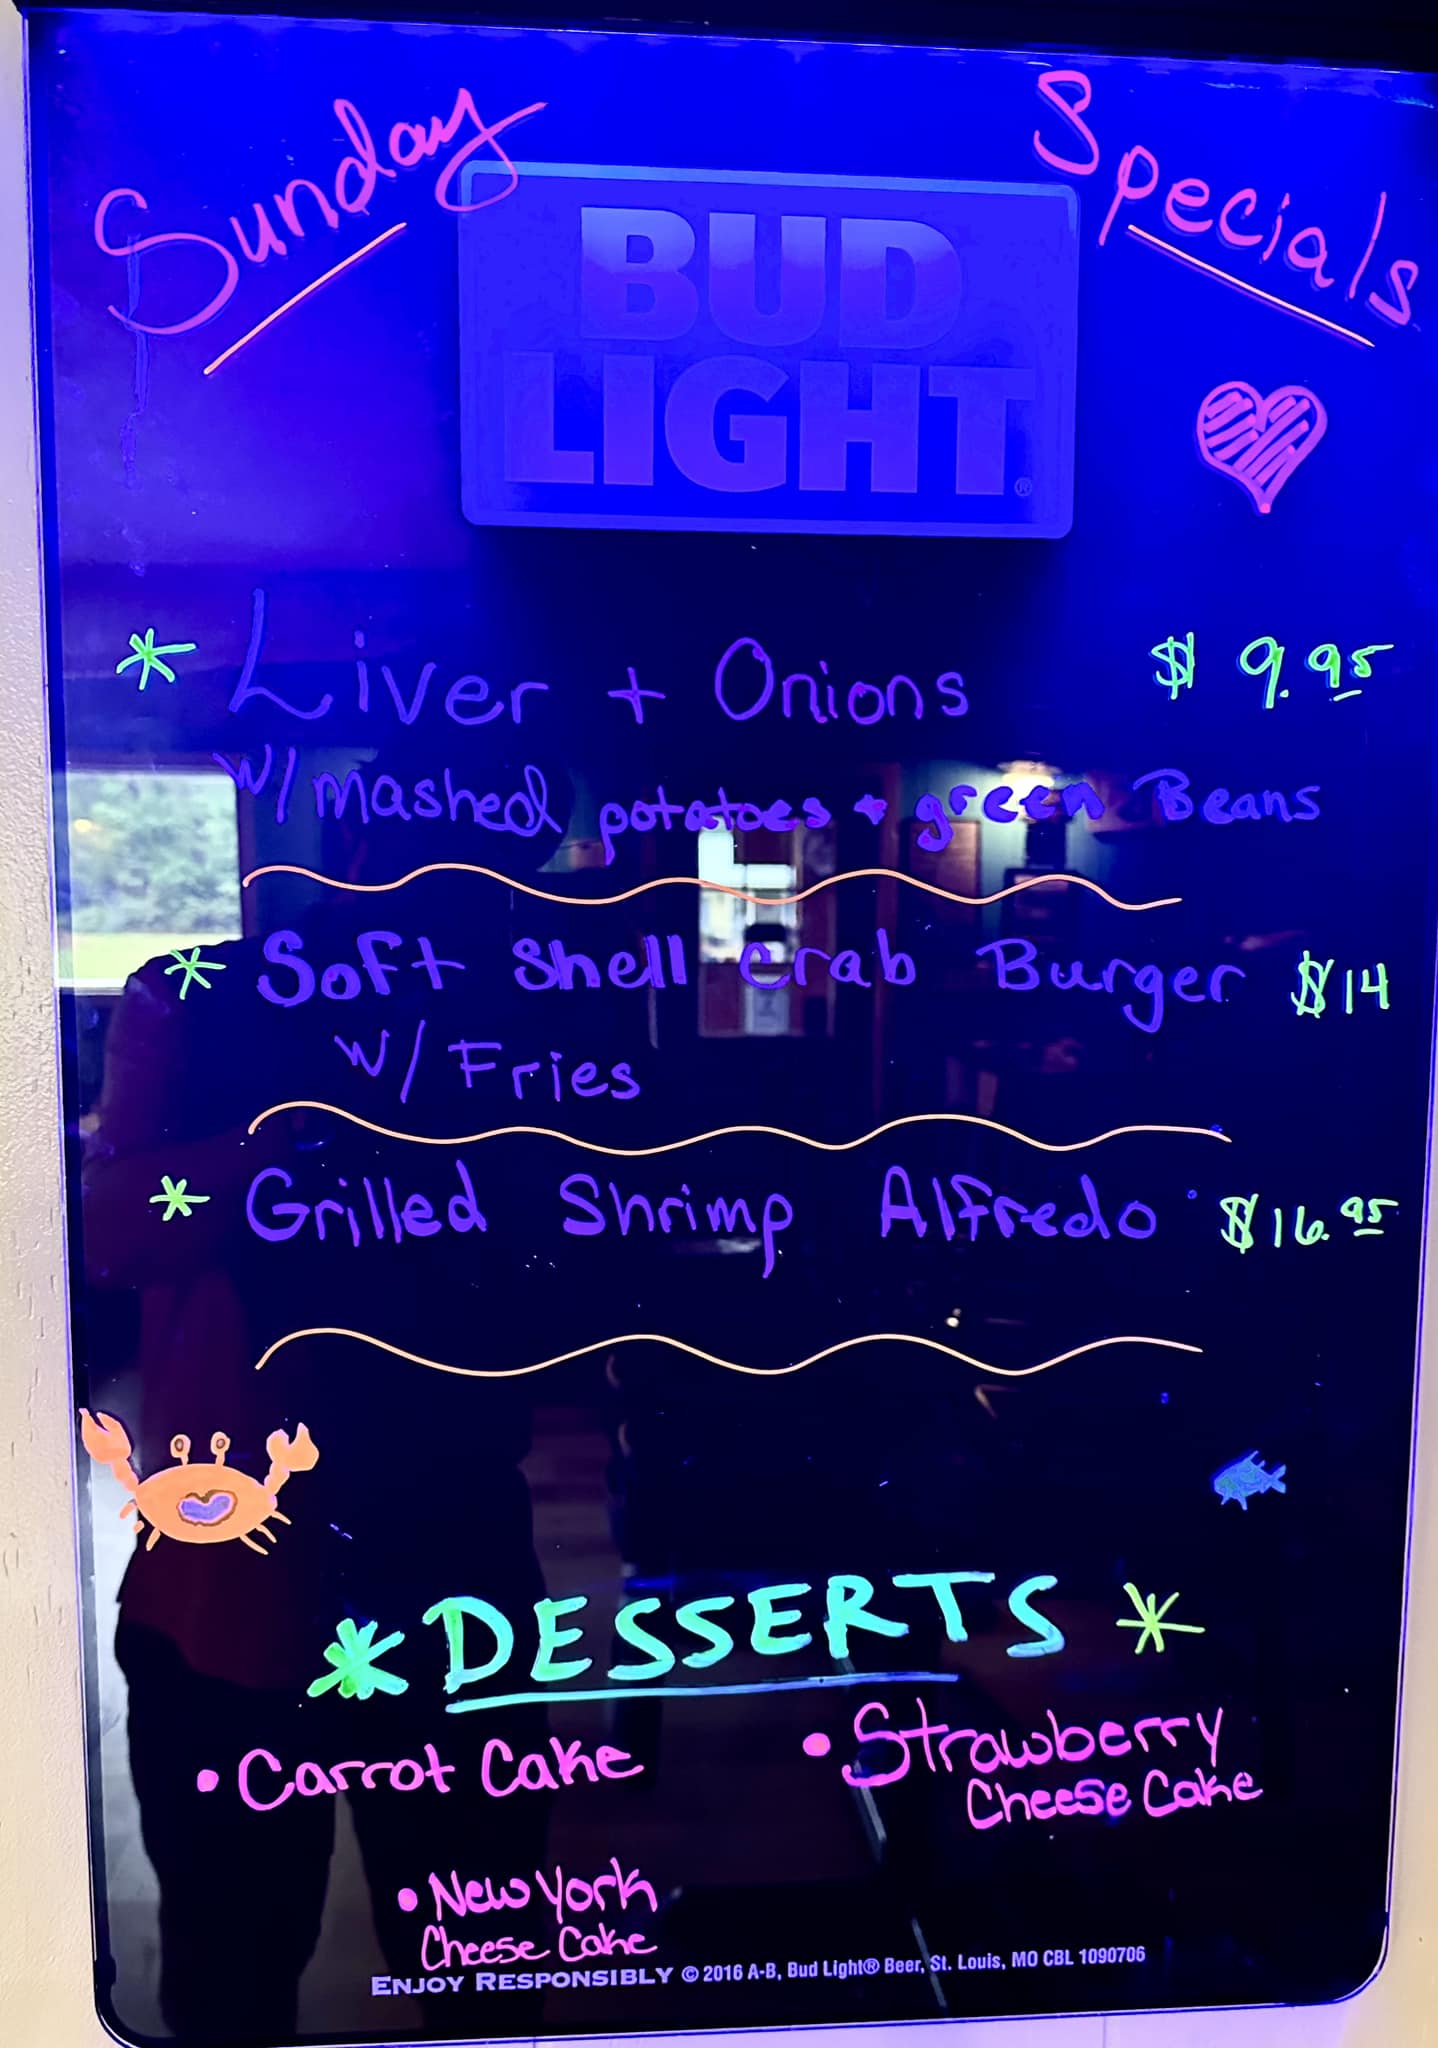 Sunday Specials
BUD
LIGHT®
* Liver + Onions $9.95
w/ mashed potatoes + green Beans
* Soft Shell Crab Burger $14
w/ Fries
* Grilled Shrimp Alfredo $16.95
* DESSERTS *
• Carrot Cake
• Strawberry
Cheese Cake
• New York
Cheese Cake
ENJOY RESPONSIBLY © 2016 A-B, Bud Light® Beer, St. Louis, MO CBL 1090706